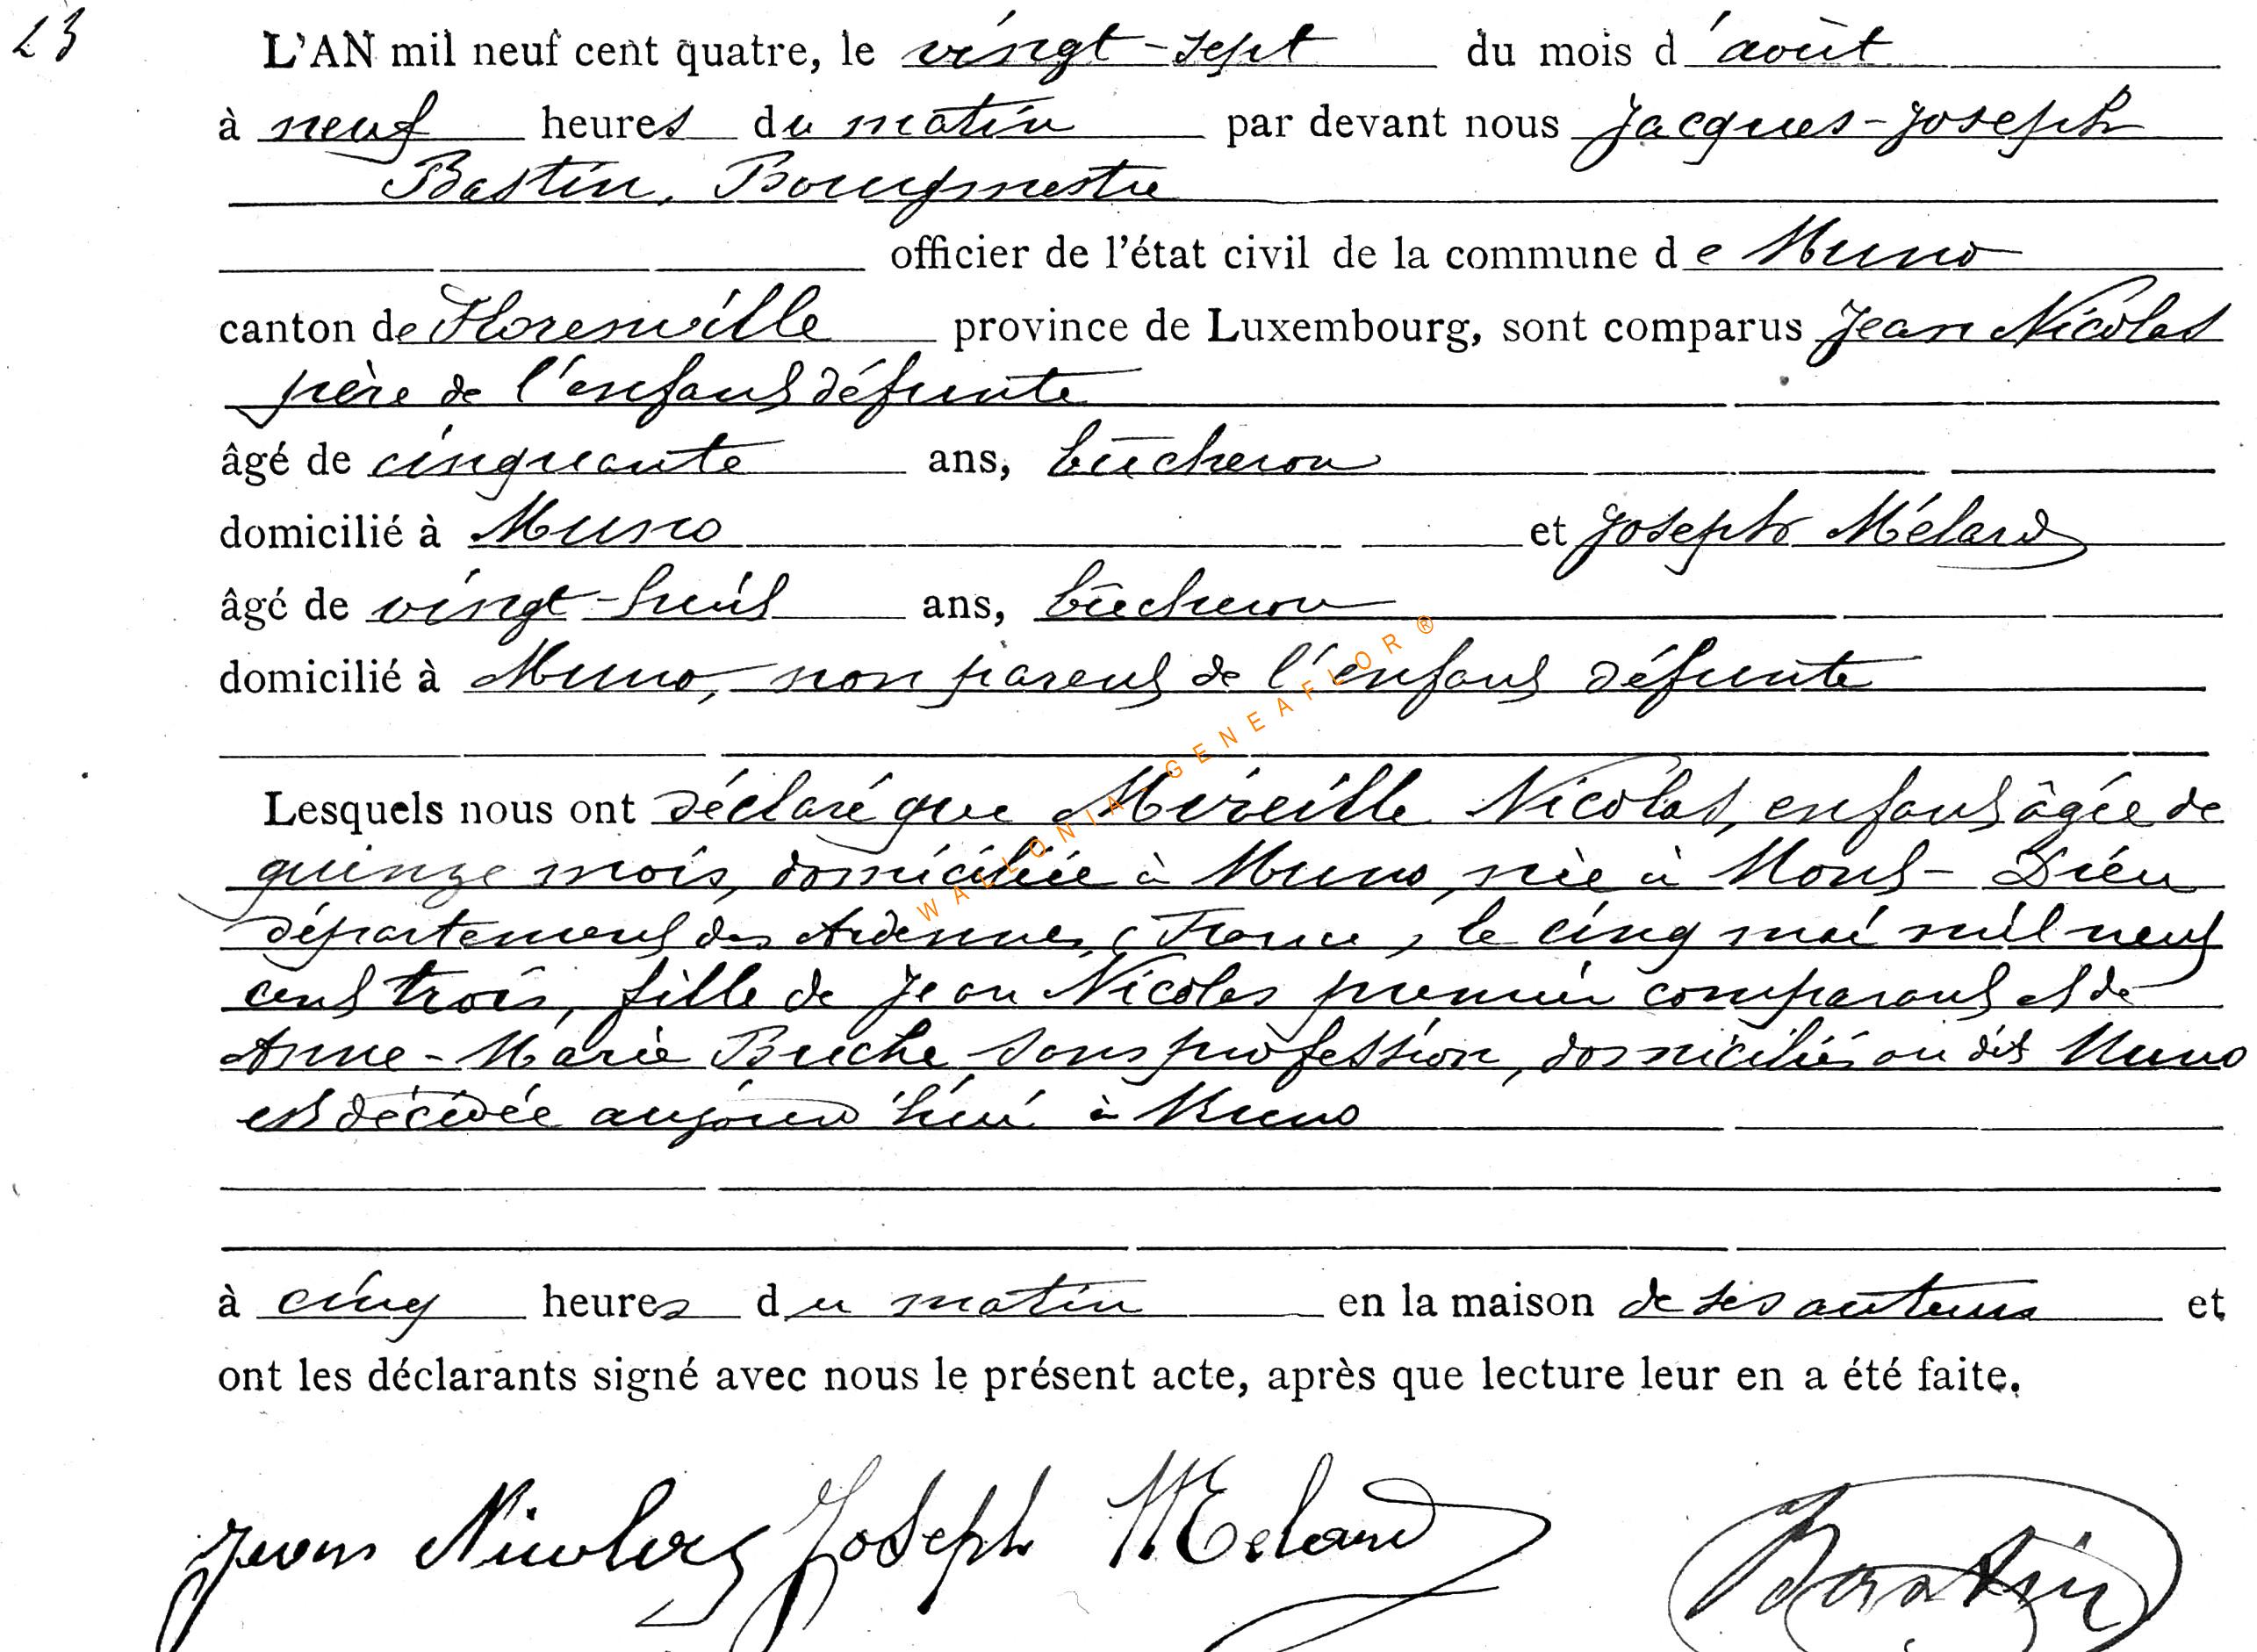 23
L'AN mil neuf cent quatre, le vingt-sept du mois d'août
à neuf heures du matin par devant nous Jacques-Joseph
Bastin, Bourgmestre
officier de l'état civil de la commune de Muno
canton de Florenville province de Luxembourg, sont comparus Jean Nicolas
père de l'enfant défunte
âgé de cinquante ans, bûcheron
domicilié à Muno et Joseph Mélard
âgé de vingt-huit ans, bûcheron
domicilié à Muno, non parent de l'enfant défunte
Lesquels nous ont déclaré que Mireille Nicolas, enfant âgée de
quinze mois, domiciliée à Muno, née à Mont-Dieu
département des Ardennes (France) le cinq mai mil neuf
cent trois, fille de Jean Nicolas premier comparant et de
Anne-Marie Buche sans profession, domiciliés au dit Muno
est décédée aujourd'hui à Muno
à cinq heures du matin en la maison de ses auteurs et
ont les déclarants signé avec nous le présent acte, après que lecture leur en a été faite.
Jean Nicolas Joseph Melard Bastin
WALLONIA-GENEAFLOR®